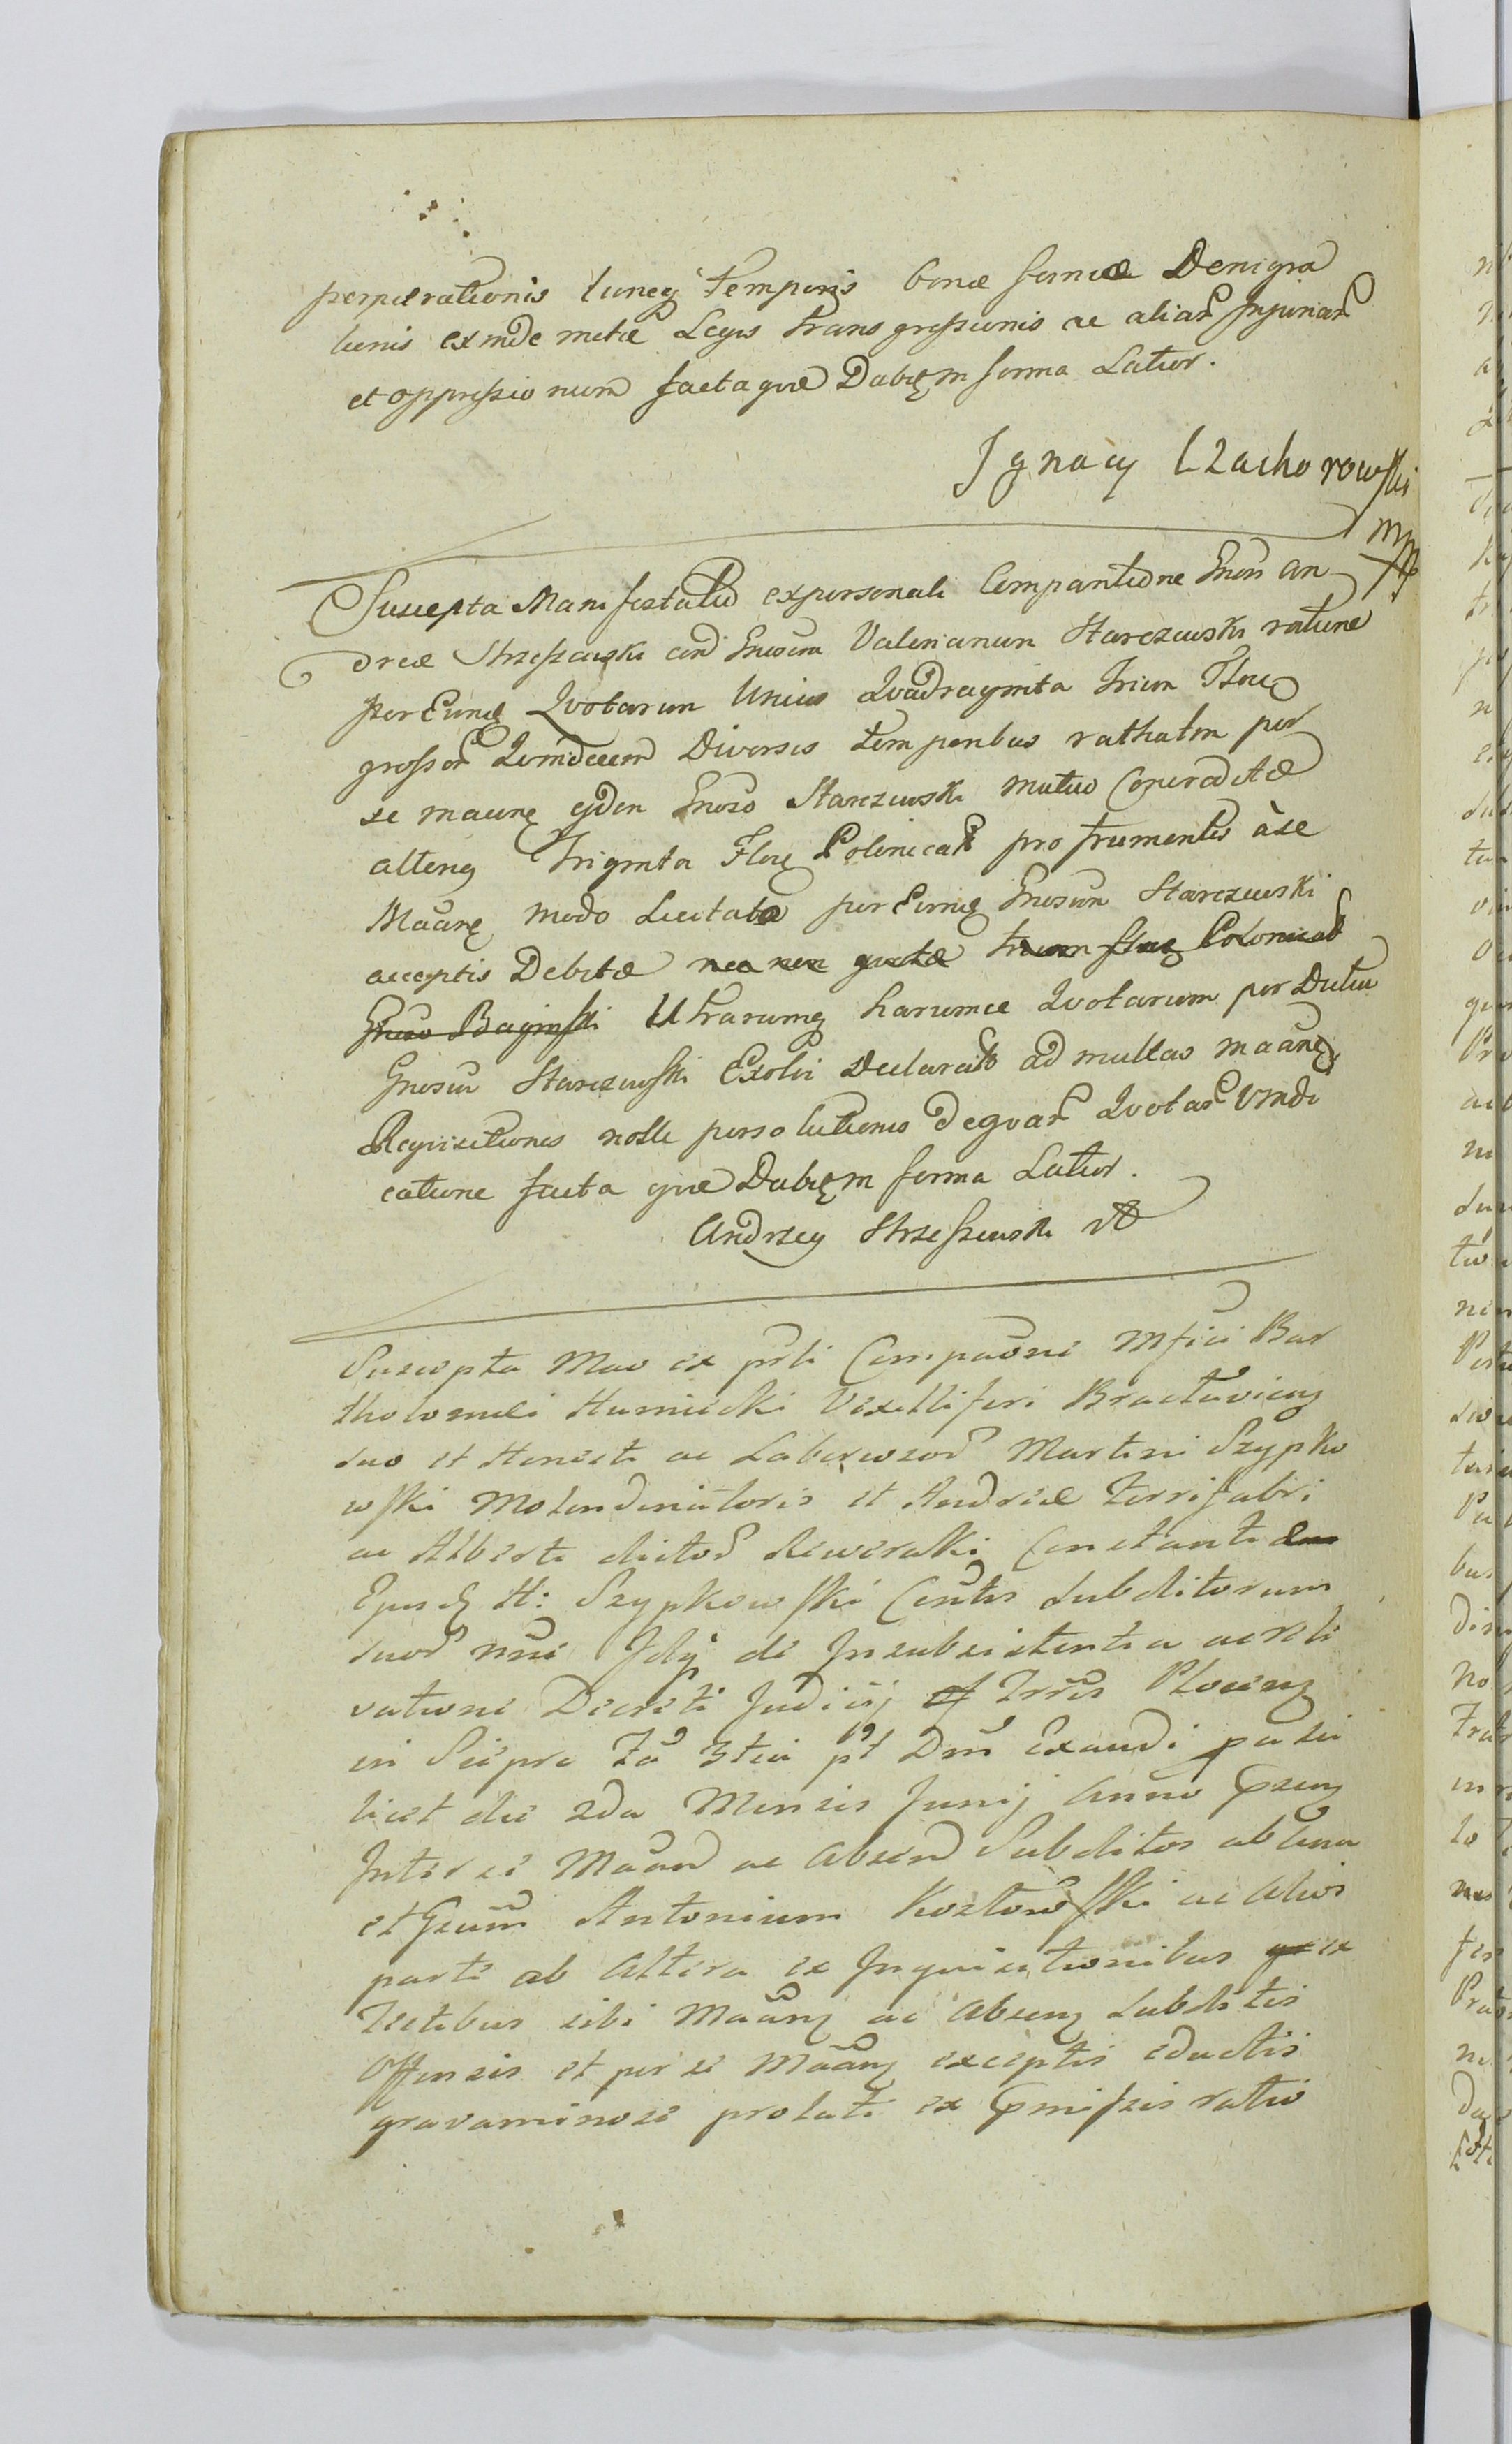 perpetrationis tuncq temporis bonæ famæ Denigra
tionis exinde metæ Legis transgressionis ac aliar Injuriar
et oppressionum facta quæ Dabitm forma Latior.
Ignacy Czachorowski
mp
Suscepta Manifestatio ex personali Comparitione Gnosi An
dreæ Strzeszewski cond Gnosum Valerianum Starczewski ratione
per Eundq Quotarum Unius Quadraginta Trium Flor
grossor Quindecem Diversis temporibus rathatim per
se maang ejdem Gnoso Starczewski mutuo Concreditæ
alterq Triginta Flor Polonicalt pro frumentis à se
Maang modo Licitato per Eundq Gnosum Starczewski
acceptis Debitæ nec non quotæ trium flor Polonicalt
Gnoso Baginski Utrarumq harumce Quotarum per Dictum
Gnosum Starczewski Exolvi Declarat ad multas maang
Requisitiones nolle persolutionis deqvar Quotar Vindi
catione facta quæ Dabitm forma Latior.
Andrzey Strzeszewski
Suscepta Mao ex prli Compaone Mfici Bar
tholomei Humiecki Vexilliferi Braclaviens
suo et Honesti ac Laboriosor Martini Szypko
wski Molendinatoris et Andreæ Ferrifabri
ac Alberti dictor Rewerski Constanti
Ejusd H: Szypkowski Contis Subditorum
suor nne Idq de Insubsistentia ac reti
vatione Decreti Judicij Trris Plocens
in Sieprc Fa 3tia pt Dni Exaudi
licet die 2da Mensis Junij Anno Psens
Inter se Maand ac Absend Subditos ab una
et Gsum Antonium Kozlowski ac Alios
parte ab Altera ex Inquisitionibus ex
Testibus sibi Maang ac Absens Subditis
Offensis et per se Maang exceptis eductis
gravaminose prolati ex Pmissis ratio